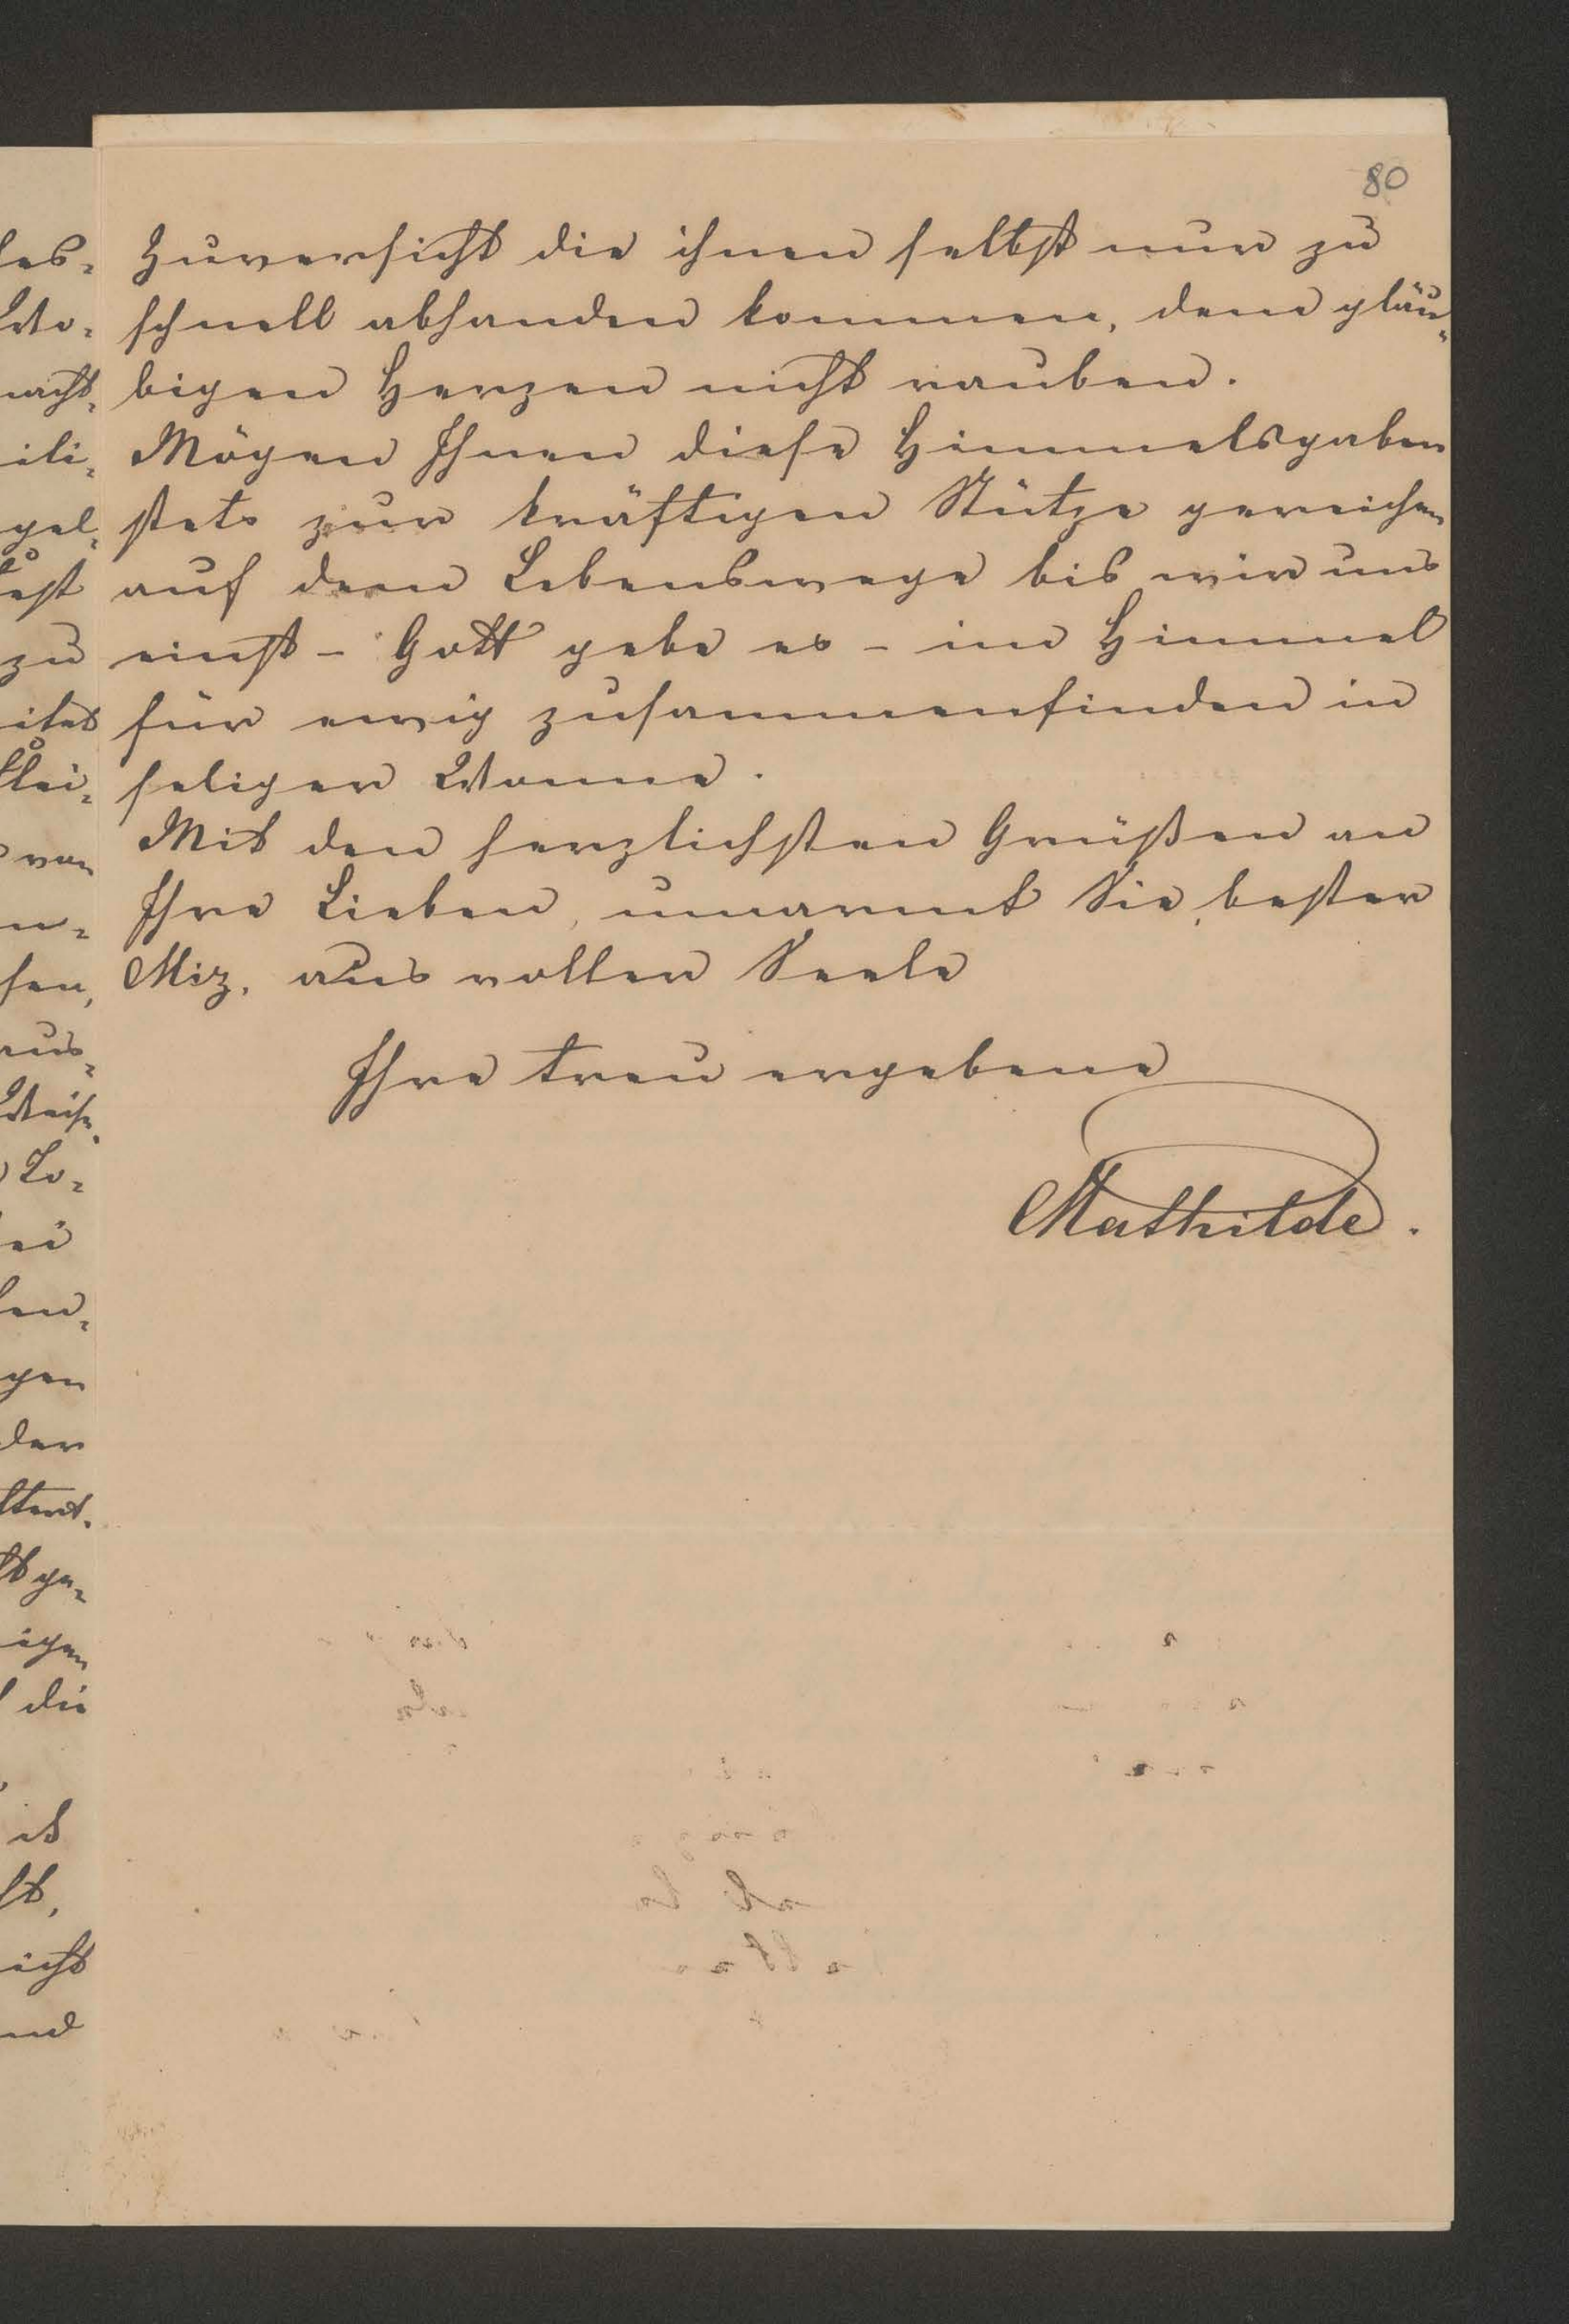 80
Zuversicht die ihnen selbst nur zu
schnell abhanden kommen, dem gläu-
bigen Herzen nicht rauben.
Mögen Ihnen diese Himmelsgaben
stets zur kräftigen Stütze gereichen
auf dem Lebenswege bis wir uns
einst - Gott gebe es - im Himmel
für ewig zusammenfinden in
seliger Wonne.
Mit den herzlichsten Grüßen an
Ihre Lieben, umarmt Sie, bester
Miz, aus voller Seele
Ihre treu ergebene
Mathilde.